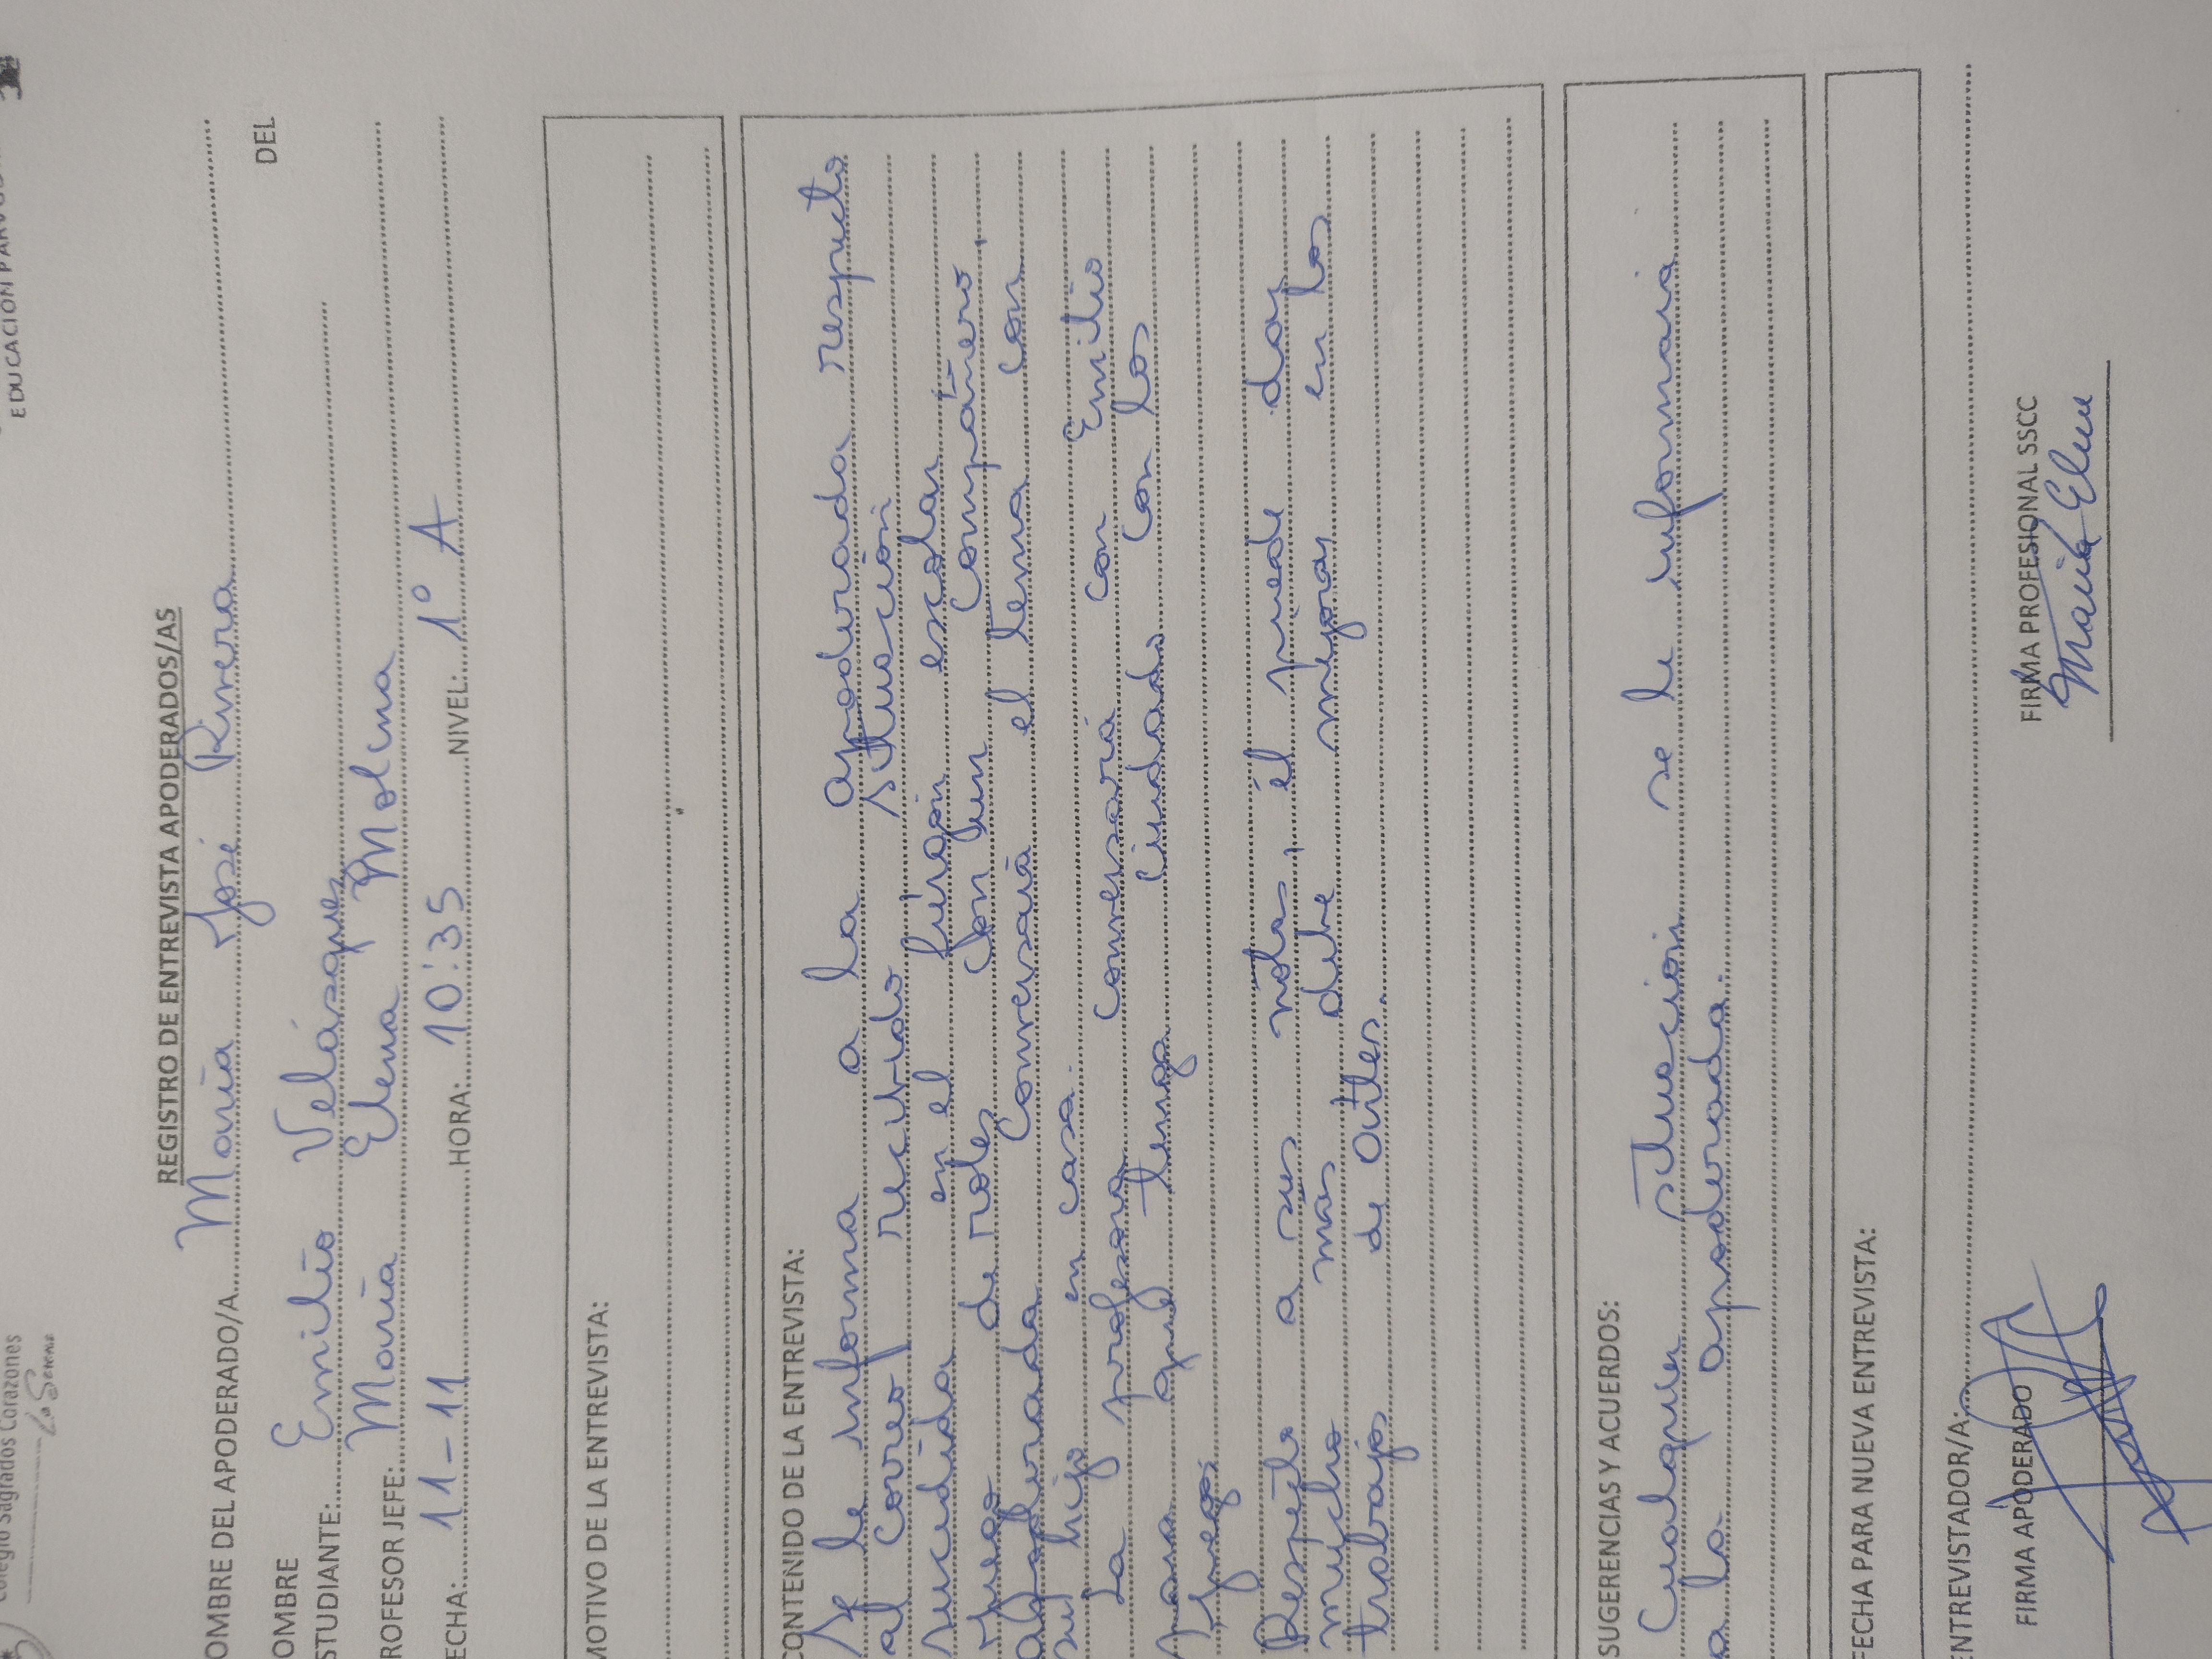 Colegio Sagrados Corazones
La Serena
EDUCACIÓN
REGISTRO DE ENTREVISTA APODERADOS/AS
OMBRE DEL APODERADO/A María José Rivera
OMBRE DEL
STUDIANTE: Emilio Velásquez
ROFESOR JEFE: María Elena Molina
ECHA: 11-11 HORA: 10:35 NIVEL: 1° A
MOTIVO DE LA ENTREVISTA:
CONTENIDO DE LA ENTREVISTA:
Se le informa a la apoderada respecto
al correo recibido situación
sucedida en el furgón escolar
juego de roles con un compañero.
apoderada conversará el tema con
su hijo en casa.
La profesora conversará con Emilio
para que tenga cuidado con los
juegos.
Respecto a sus notas, él puede dar
mucho más debe mejorar en los
trabajos de Artes.
SUGERENCIAS Y ACUERDOS:
Cualquier situación se le informará
a la apoderada.
FECHA PARA NUEVA ENTREVISTA:
ENTREVISTADOR/A:
FIRMA APODERADO FIRMA PROFESIONAL SSCC
María Elena